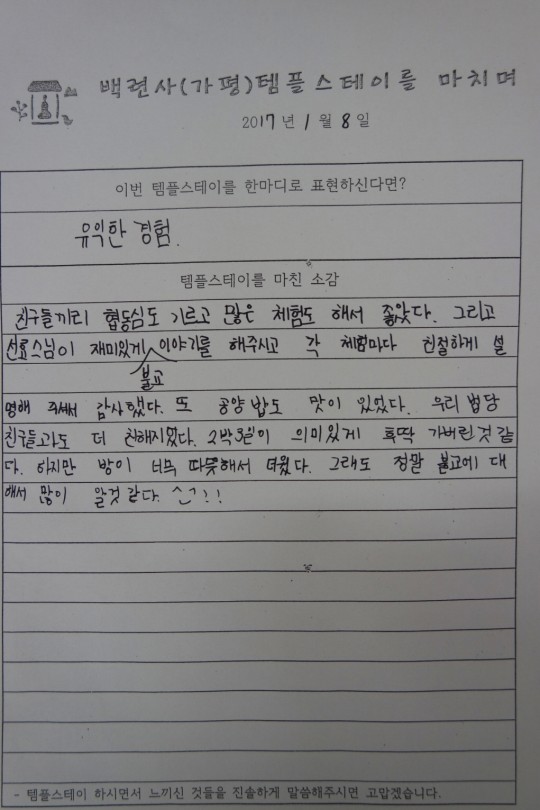 백련사(가평)템플스테이를 마치며
2017년 1월 8일
이번 템플스테이를 한마디로 표현하신다면?
유익한 경험.
템플스테이를 마친 소감
친구들끼리 협동심도 기르고 많은 체험도 해서 좋았다. 그리고
선효스님이 재미있게 불교 이야기를 해주시고 각 체험마다 친절하게 설
명해 주셔서 감사했다. 또 공양밥도 맛이 있었다. 우리 법당
친구들과도 더 친해지였다. 2박3일이 의미있게 후딱 가버린것 같
다. 하지만 방이 너무 따뜻해서 더웠다. 그래도 정말 불교에 대
해서 많이 알것 같다. ^-^!!
- 템플스테이 하시면서 느끼신 것들을 진솔하게 말씀해주시면 고맙겠습니다.